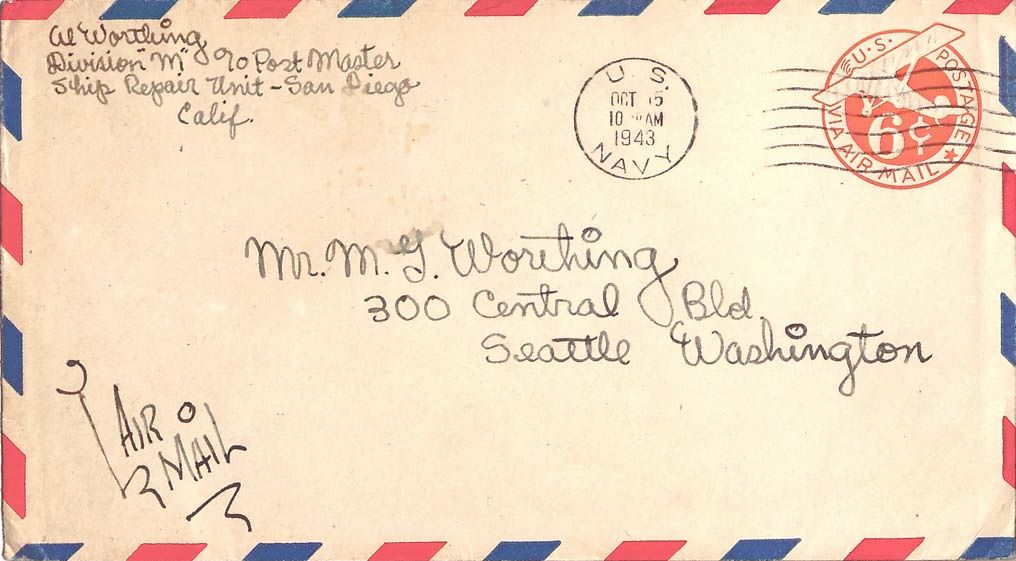 Al Worthing
Division "M" c/o Post Master
Ship Repair Unit - San Diego
Calif.
U. S.
OCT 15
10 AM
1943
NAVY
U.S. POSTAGE
6¢
VIA AIR MAIL
Mr. M. G. Worthing
300 Central Bld.
Seattle Washington
AIR
MAIL